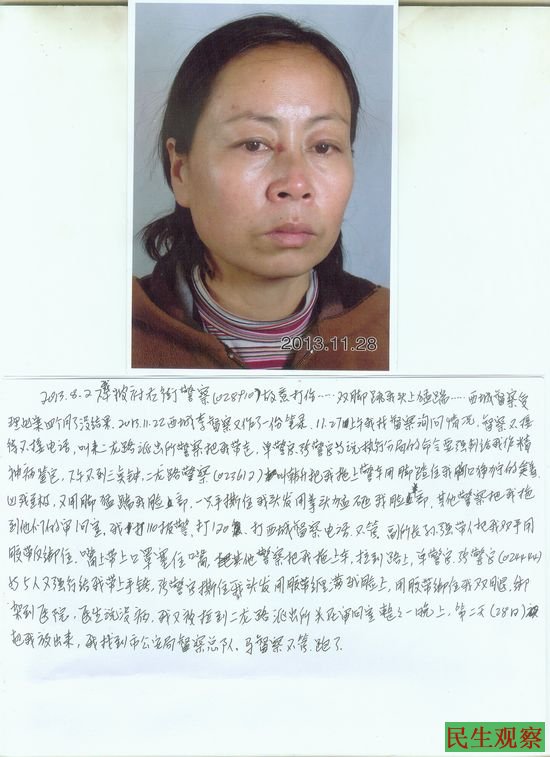 2013.11.28
2013.8.2 被府右街警察(028910)故意打伤……双脚跳我头上猛踢……西城督察受
理此案四个月了没结果. 2013.11.22西城李督察又作了一份笔录. 11.27上午我找督察询问情况, 督察不接
待不接电话, 叫来二龙路派出所警察把我带走, 单警官张警官说执行分局的命令要强制给我作精
神病鉴定, 下午不到三点钟, 二龙路警察(023612) 把我拖上警车用脚踩住我胸口
又用脚猛踢我脸部, 一只手撕住我头发用拳头猛砸我脸部, 其他警察把我拖
到他们的审问室, 我打110报警, 打120 打西城督察电话不管, 副所长孙强带人把我双手用
胶带反绑住, 嘴上带上口罩塞住嘴, 其他警察把我拖上车, 拉到路上, 单警官张警官(024444)
的5人又强行给我带上手铐, 张警官撕住我头发用胶带缠满我脸上, 用胶带绑住我双腿, 绑
架到医院, 医生说没病. 我又被拉到二龙路派出所关在审问室整整一晚上, 第二天(28日)
把我放出来, 我找到市公安局督察总队, 马督察不管跑了.
民生观察